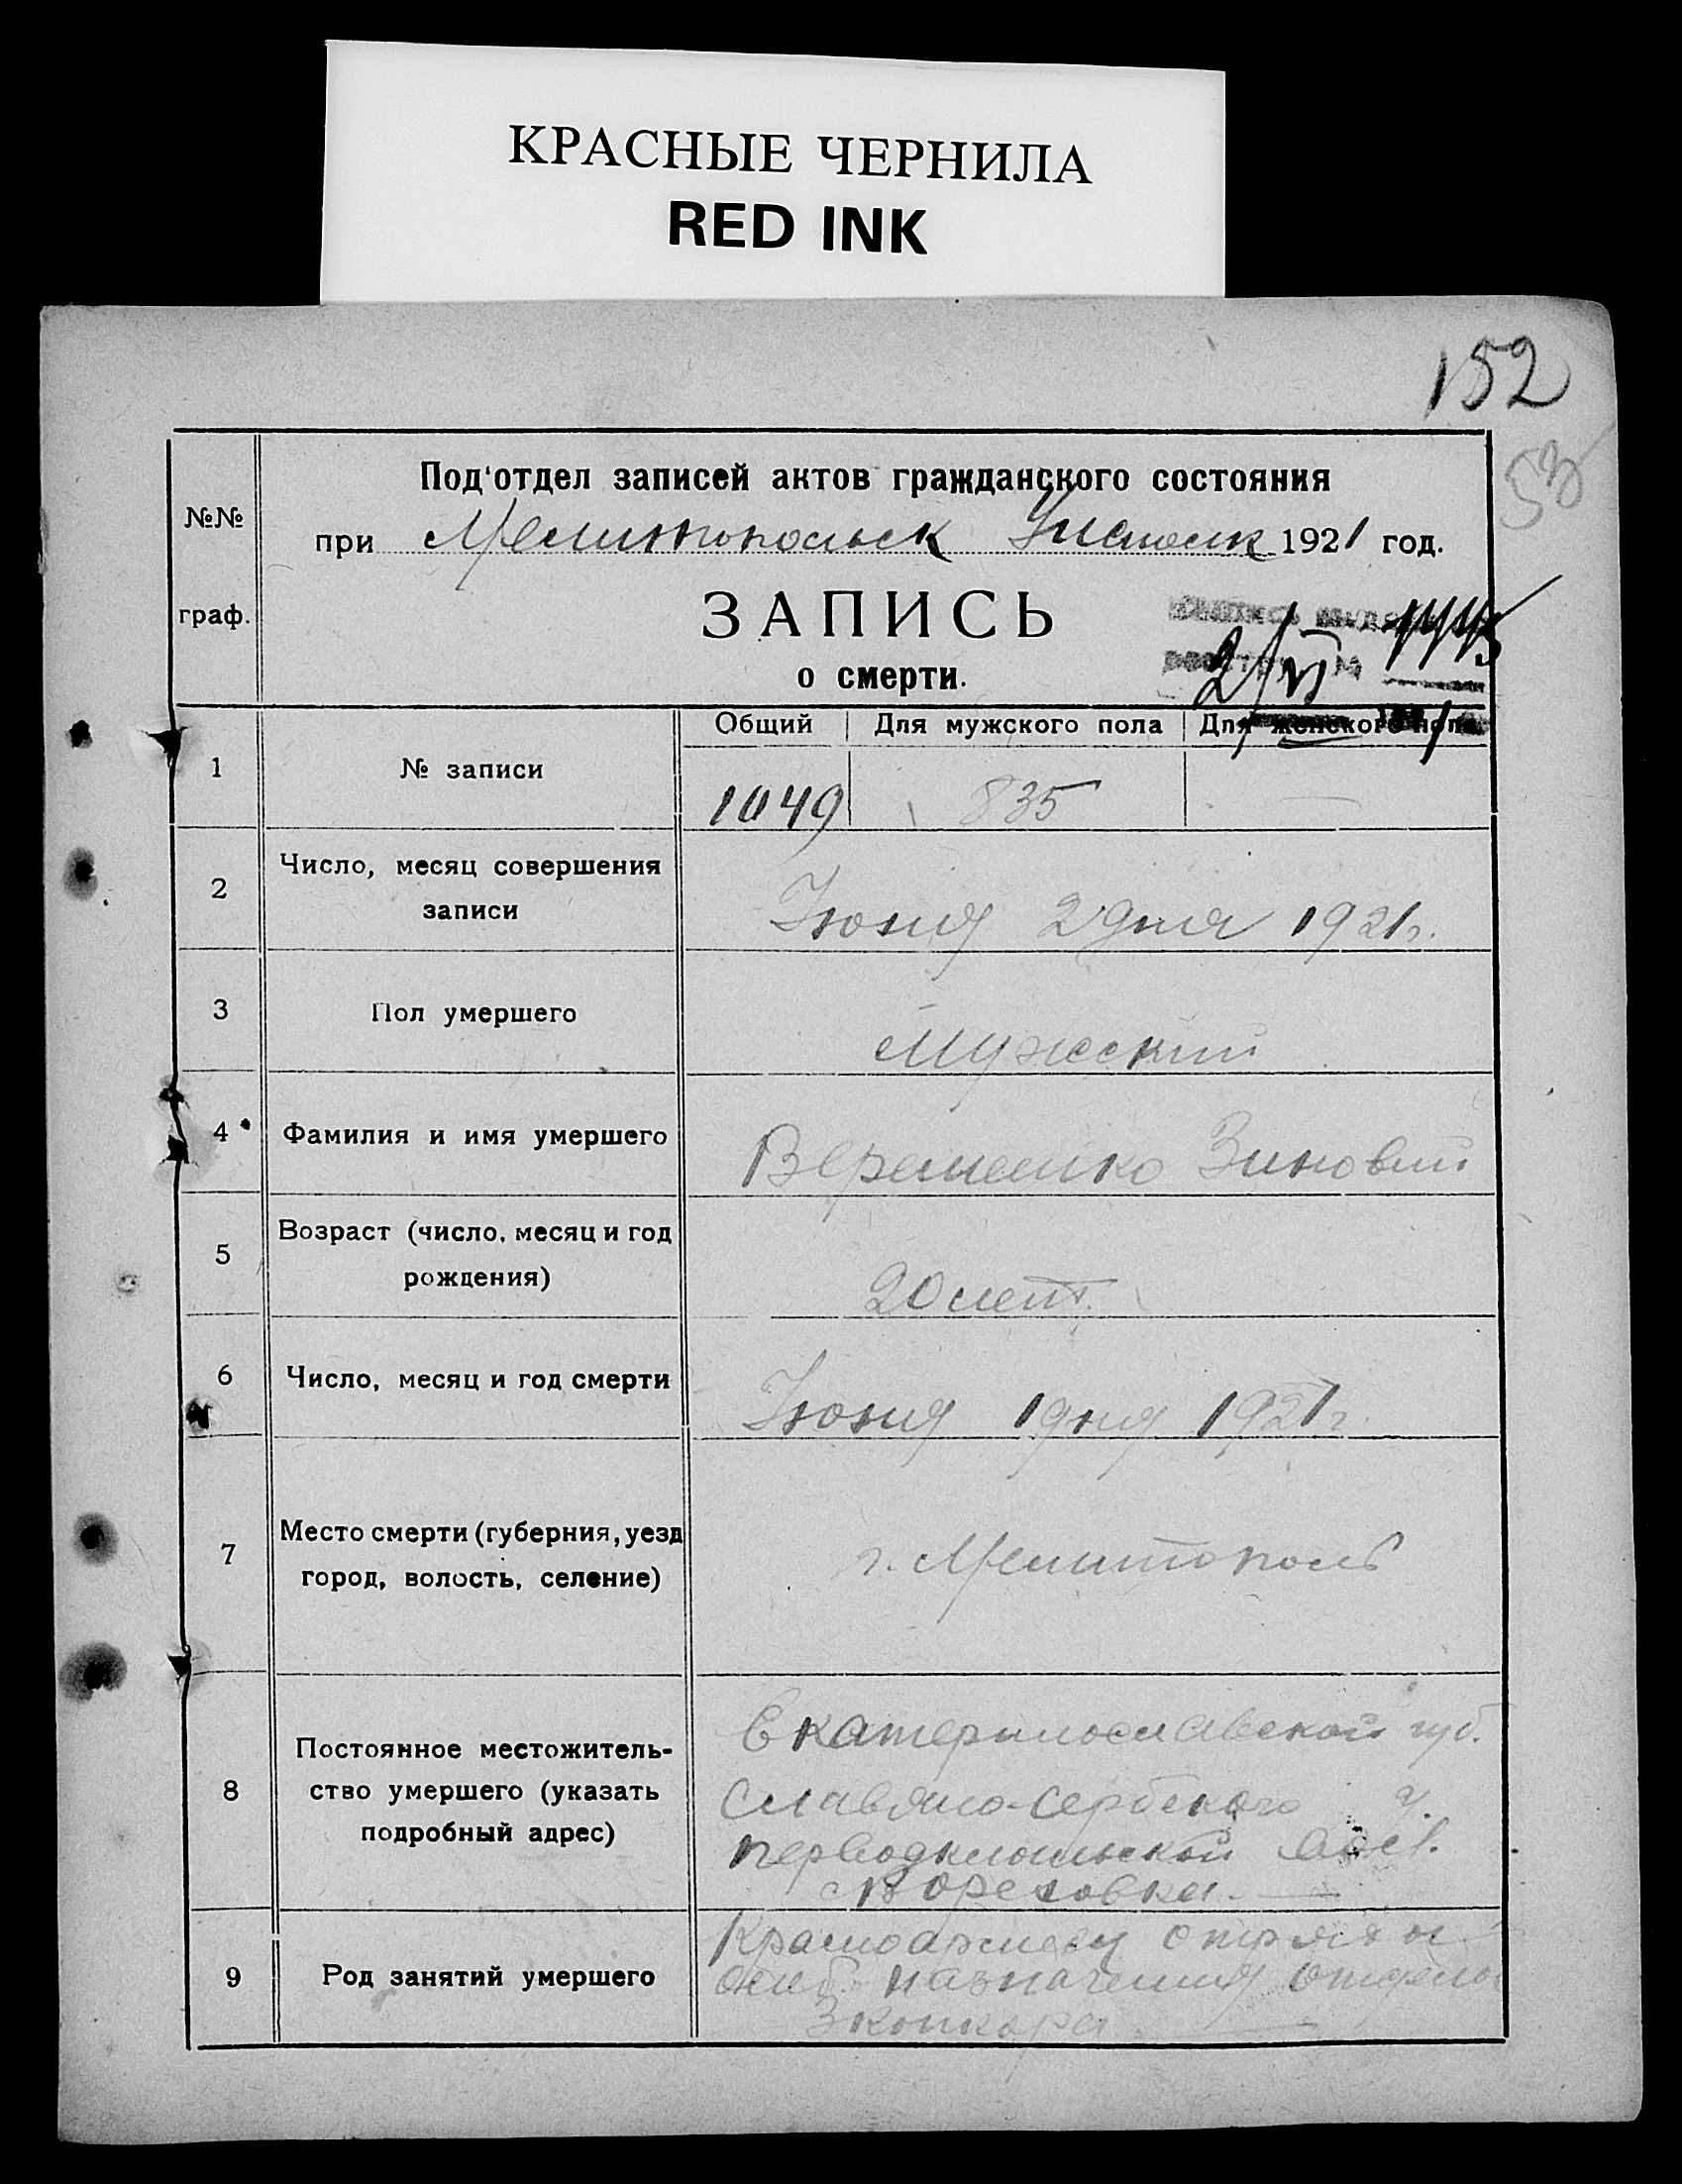 КРАСНЫЕ ЧЕРНИЛА
RED INK
152
53
Под'отдел записей актов гражданского состояния
№№
при Мелитопольск 1921 год.
граф.
ЗАПИСЬ
о смерти.
2/VI
Общий Для мужского пола Для женского пола
1 № записи
1049 835 —
2 Число, месяц совершения
записи
Июня 2 дня 1921 г.
3 Пол умершего
Мужский
4 Фамилия и имя умершего
Веременко Зиновий
5 Возраст (число, месяц и год
рождения)
20 лет.
6 Число, месяц и год смерти
Июня 1 дня 1921 г.
7 Место смерти (губерния, уезд
город, волость, селение)
г. Мелитополь
8 Постоянное местожитель-
ство умершего (указать
подробный адрес)
Екатеринославской губ.
Славяно-Сербского у.
9 Род занятий умершего
Красноармеец отряда
назначения отдела